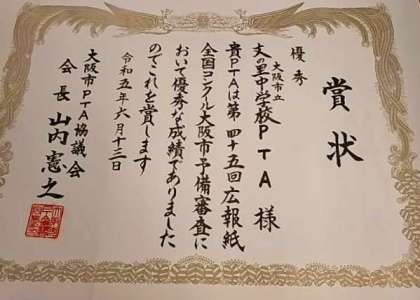 賞状
優秀
大阪市立
文の里中学校PTA様
貴PTAは第四十五回広報紙
全国コンクール大阪市予備審査に
おいて優秀な成績でありました
のでこれを賞します
令和五年六月十三日
大阪市PTA協議会
会長 山内憲之